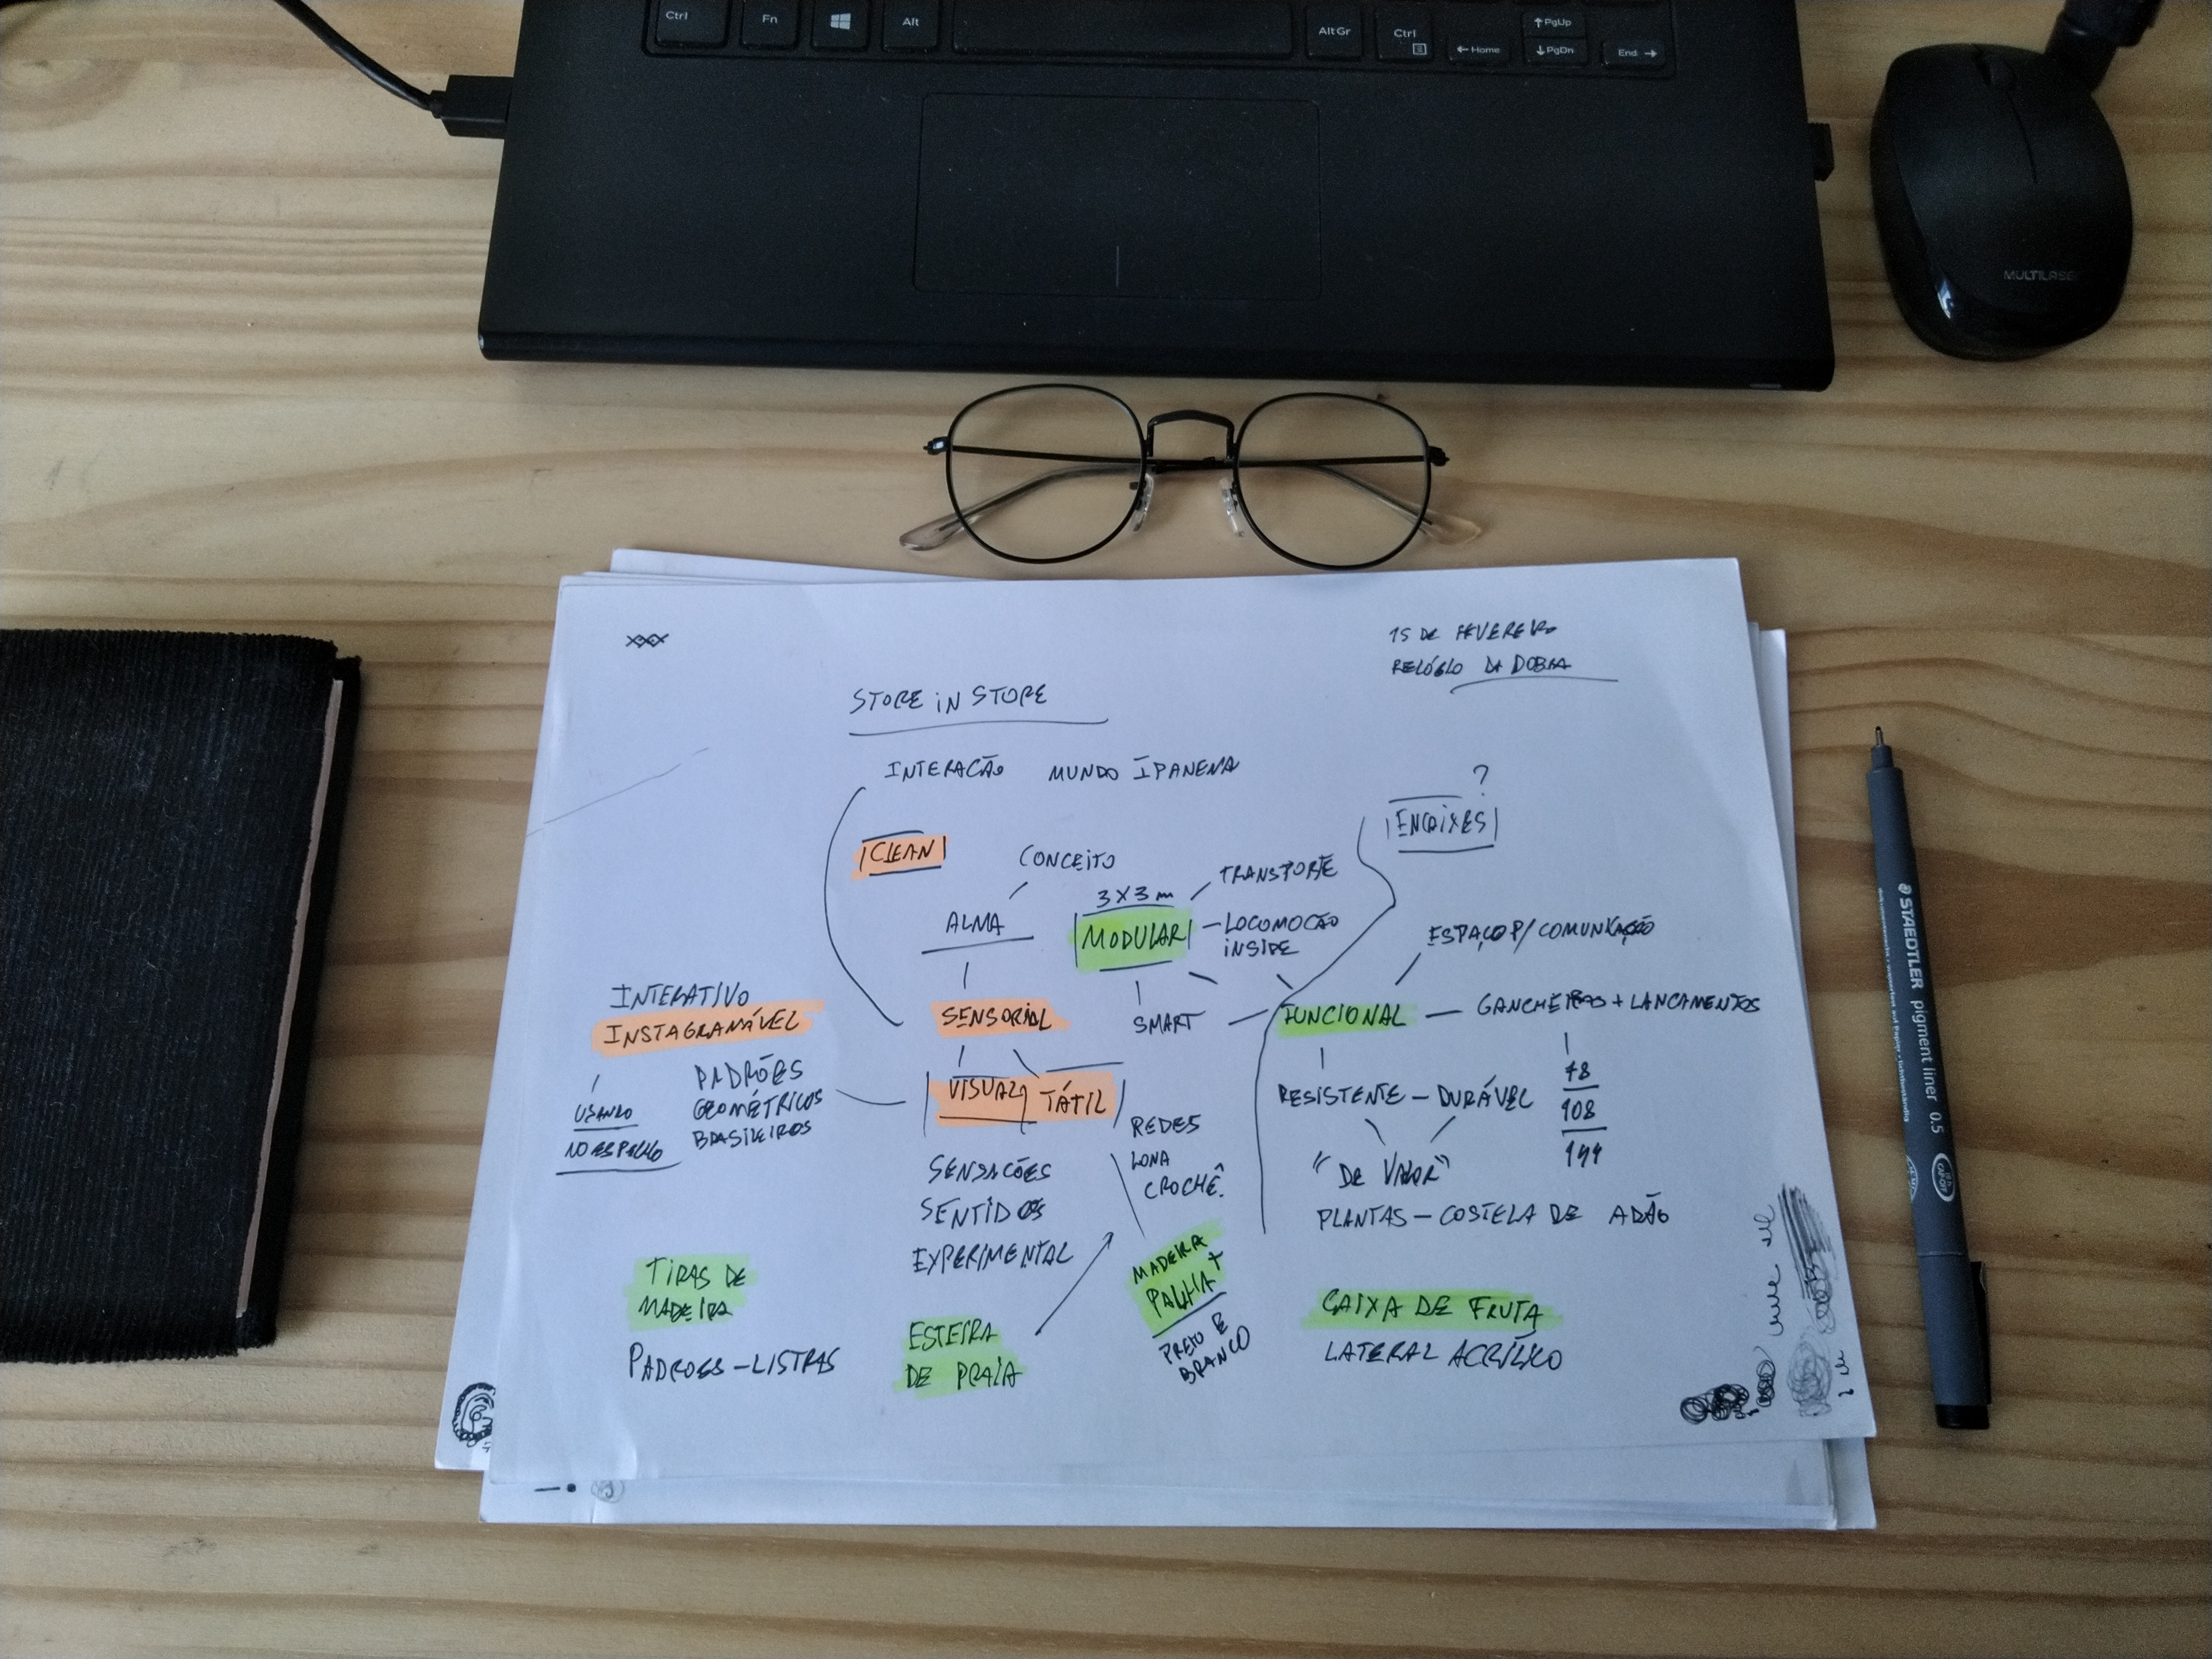 Ctrl
Fn
Alt
Alt Gr
Ctrl
Home
PgUp
PgDn
End
MULTILASER
15 DE FEVEREIRO
RELÓGIO DA DOBRA
STORE IN STORE
INTERAÇÃO MUNDO IPANEMA
?
ENCAIXES
CLEAN
CONCEITO
3X3m
TRANSPORTE
ALMA
MODULAR
LOCOMOÇÃO
INSIDE
ESPAÇO P/ COMUNICAÇÃO
INTERATIVO
INSTAGRAMÁVEL
SENSORIAL
SMART
FUNCIONAL
GANCHEIRAS + LANCAMENTOS
USANDO
NO ESPELHO
PADRÕES
GEOMÉTRICOS
BRASILEIROS
VISUAL
TÁTIL
REDES
LONA
CROCHÊ.
RESISTENTE — DURÁVEL
78
108
144
"DE VALOR"
PLANTAS — COSTELA DE ADÃO
SENSAÇÕES
SENTIDOS
EXPERIMENTAL
TIRAS DE
MADEIRA
PADROES — LISTRAS
ESTEIRA
DE PRAIA
MADEIRA +
PALHA
PRETO E
BRANCO
CAIXA DE FRUTA
LATERAL ACRÍLICO
STAEDTLER pigment liner 0.5